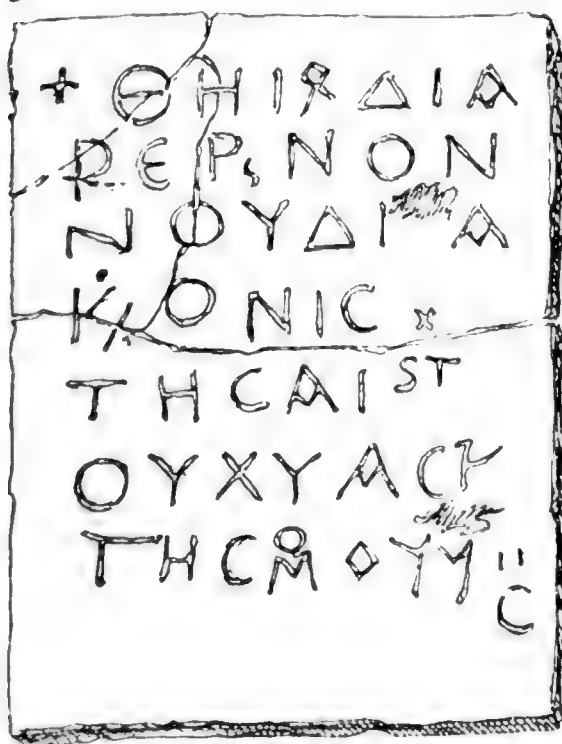 + ΘΗΙϘΔΙΑ
ΦΕΡ, ΝΟΝ
ΝΟΥΔΙΑ
ΚΟΝΙϹ ×
ΤΗϹΑΙ ST
ΟΥΧΥΑϹΚ
ΤΗϹΜΟΥΜ
Ϲ